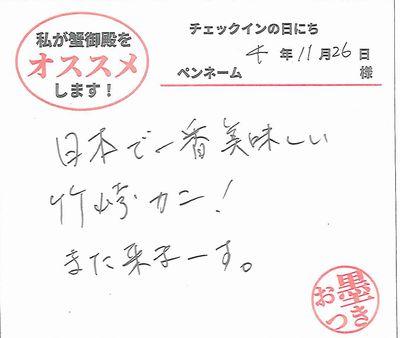 私が蟹御殿を
オススメ
します！
チェックインの日にち
4年11月26日
ペンネーム 様
日本で一番美味しい
竹崎カニ！
また来まーす。
お墨つき